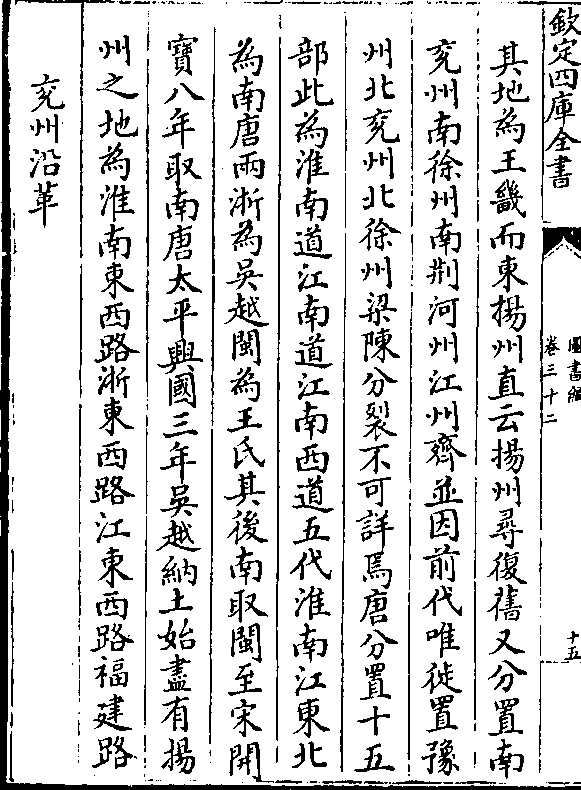 欽定四庫全書
圖書編
卷三十二
十五
其地為王畿而東揚州直云揚州尋復舊又分置南
兖州南徐州南荆河州江州齊並因前代唯徙置豫
州北兖州北徐州梁陳分裂不可詳焉唐分置十五
部此為淮南道江南道江南西道五代淮南江東北
為南唐兩浙為吳越閩為王氏其後南取閩至宋開
寶八年取南唐太平興國三年吳越納土始盡有揚
州之地為淮南東西路浙東西路江東西路福建路
兖州沿革